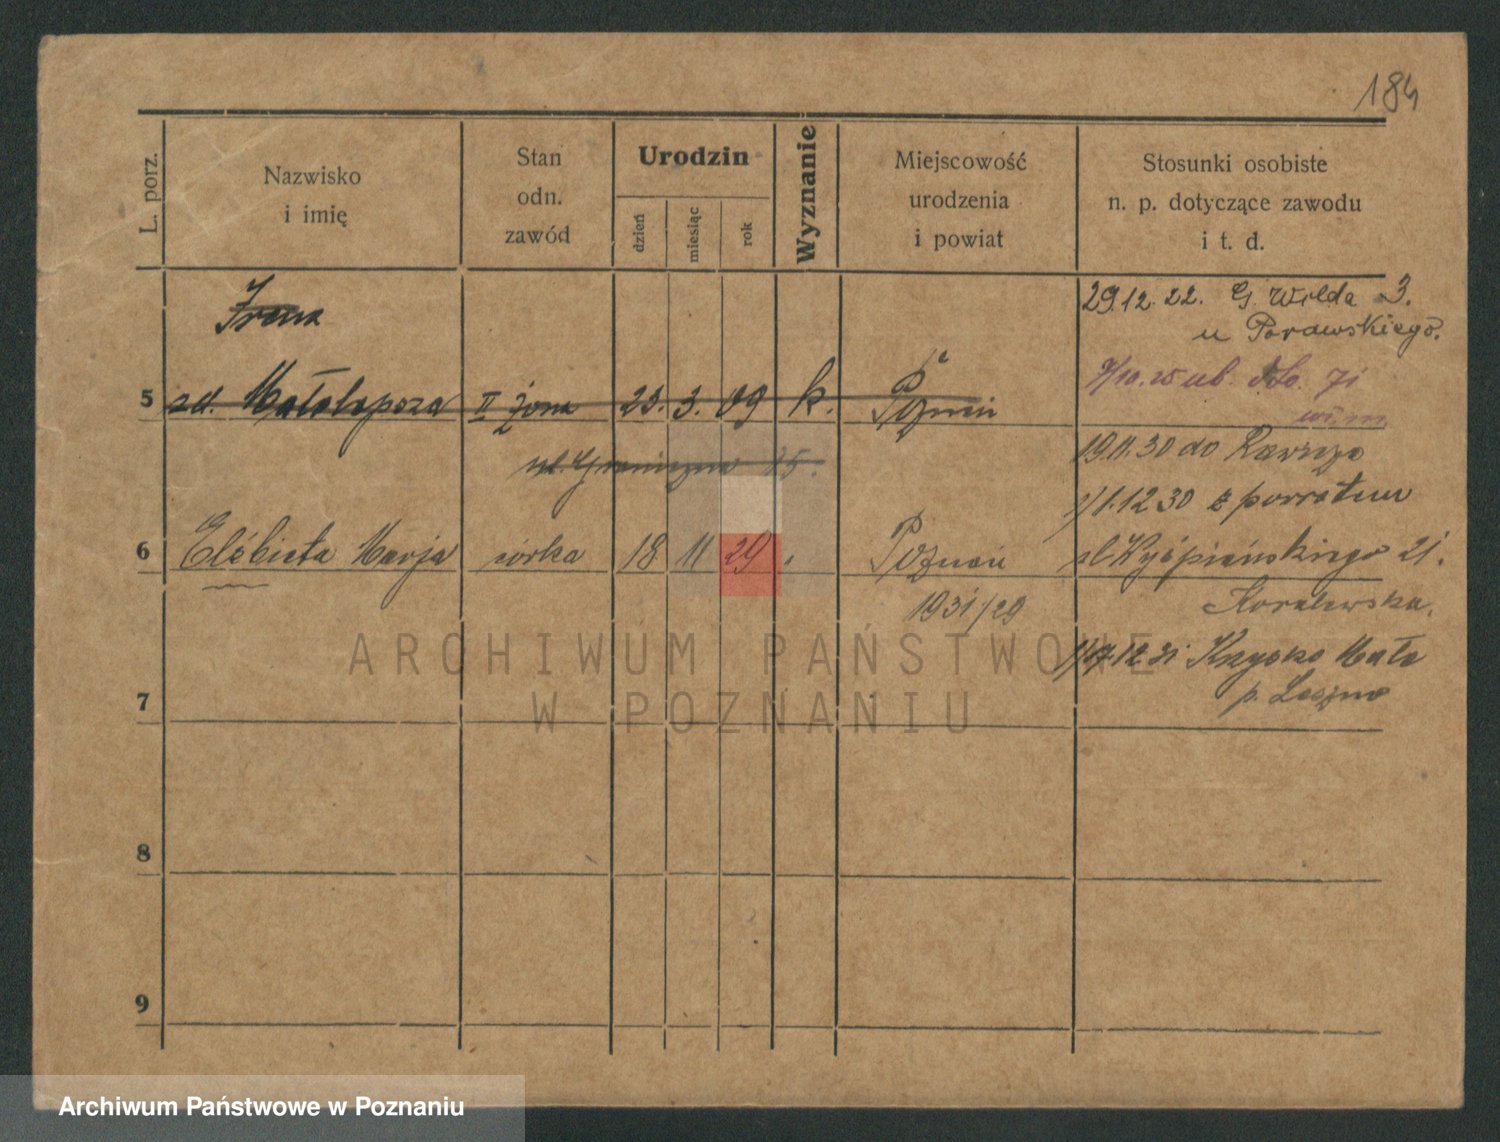 184
L. porz.
Nazwisko
i imię
Stan
odn.
zawód
Urodzin
dzień
miesiąc
rok
Wyznanie
Miejscowość
urodzenia
i powiat
Stosunki osobiste
n. p. dotyczące zawodu
i t. d.
29.12.22. G. Wilda 3.
Irena
u Porawskiego.
5 zd. Małolepsza II żona 23. 3. 09 k. Poznań
19.11.30 do
ul. Graniczna 15.
1.12 30 z powrotem
6 Elżbieta Marja córka 18 11 29 Poznań
ul Wyśpiańskiego 21.
1931/29
Koralewska.
ARCHIWUM PAŃSTWOWE
17.12.31 Krzycko Małe
p. Leszno
7
W POZNANIU
8
9
Archiwum Państwowe w Poznaniu